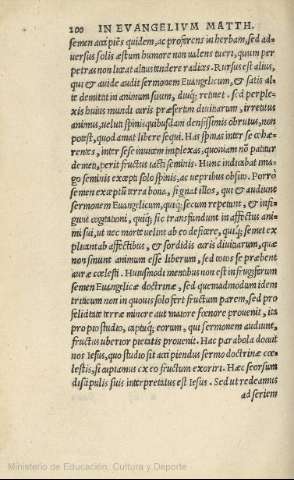 200 IN EVANGELIVM MATTH.
semen accipiēs quidem, ac proferens in herbam, sed ad-
uersus solis æstum humore non ualens tueri, quum per
petras non luxat altius tendere radices. Rursus est alius,
qui & auide audit sermonem Euangelicum, & satis al-
te demittit in animum suum, diuq; retinet. sed perple-
xis huius mundi curis præsertim diuitiarum, irretitus
animus, uelut spinis quibusdam densissimis obrutus, non
potest, quod amat libere sequi. Has spinas inter se cohæ-
rentes, inter sese inuicem implexas, quoniam nō patitur
demeti, perit fructus iacti seminis. Hunc indicabat ima-
go seminis excepti solo spinis, ac uepribus obsito. Porrò
semen exceptū terra bona, signat illos, qui & audiunt
sermonem Euangelicum, quiq; secum repetunt, & infi-
gunt cogitationi, quiq; sic transfundunt in affectus ani-
mi sui, ut nec morte uelint ab eo deficere, quiq; semet ex
pliant ab affectibus, & sordidis curis diuitiarum, quæ
non sinunt animum esse liberum, sed totos se præbent
auræ cœlesti. Huiusmodi mentibus non est infrugiferum
semen Euangelicæ doctrinæ, sed quemadmodum idem
triticum non in quouis solo fert fructum parem, sed pro
felicitate terræ minore aut maiore fœnore prouenit, ita
pro studio, captuq; eorum, qui sermonem audiunt,
fructus uberior pietatis prouenit. Hac parabola docuit
nos Iesus, quo studio sit accipiendus sermo doctrinæ cœ-
lestis, si cupiamus ex eo fructum exoriri. Hæc seorsum
discipulis suis interpretatus est Iesus. Sed ut redeamus
ad seriem
Ministerio de Educación, Cultura y Deporte